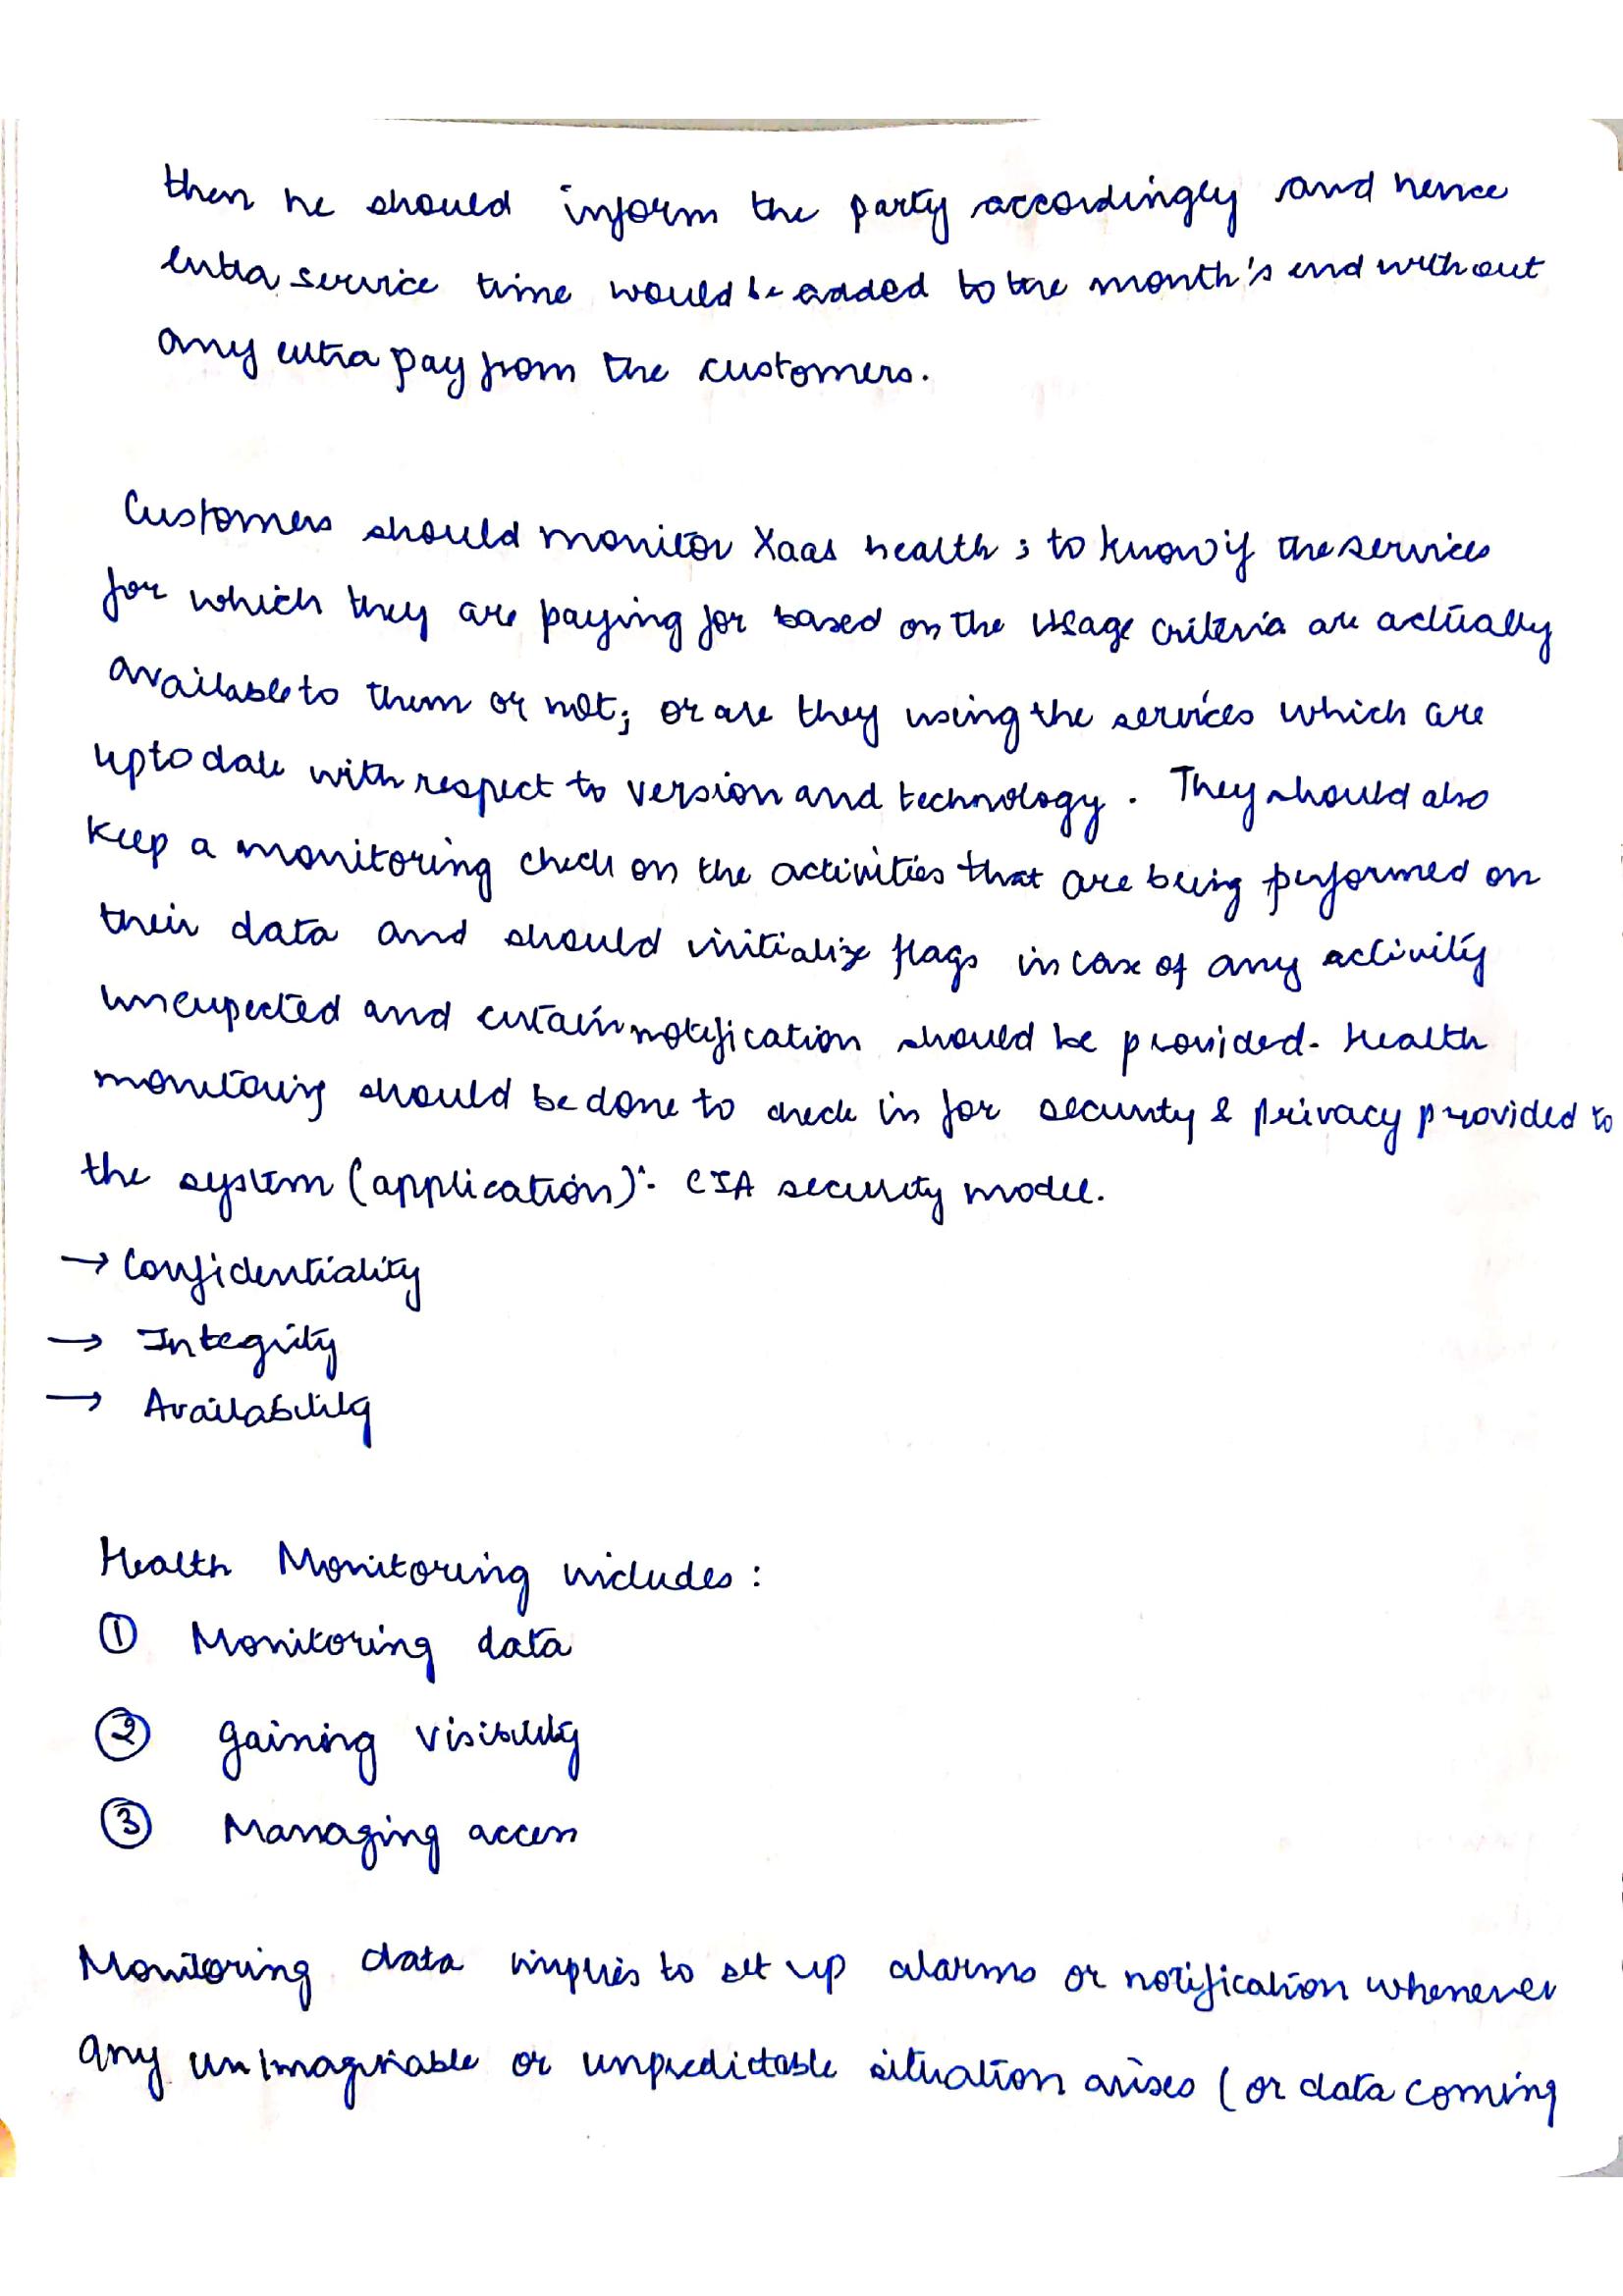 then he should inform the party accordingly and hence
extra service time would be added to the month's end without
any extra pay from the customers.
Customers should monitor Xaas health ; to know if the services
for which they are paying for based on the usage criteria are actually
available to them or not; or are they using the services which are
upto date with respect to version and technology. They should also
keep a monitoring check on the activities that are being performed on
their data and should initialize flags in case of any activity
unexpected and certain notification should be provided. Health
monitoring should be done to check in for security & privacy provided to
the system (application):- CIA security model.
→ Confidentiality
→ Integrity
→ Availability
Health Monitoring includes :
① Monitoring data
② Gaining visibility
③ Managing access
Monitoring data implies to set up alarms or notification whenever
any unimaginable or unpredictable situation arises (or data coming